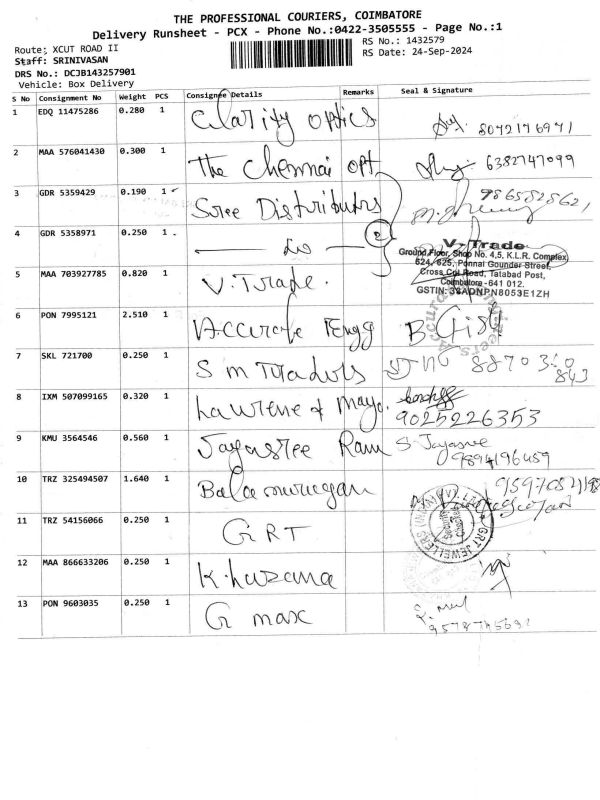 THE PROFESSIONAL COURIERS, COIMBATORE
Delivery Runsheet - PCX - Phone No.:0422-3505555 - Page No.:1
Route: XCUT ROAD II
RS No.: 1432579
Staff: SRINIVASAN
RS Date: 24-Sep-2024
DRS No.: DCJB143257901
Vehicle: Box Delivery
S No Consignment No Weight PCS Consignee Details Remarks Seal & Signature
1 EDQ 11475286 0.280 1 Clarity optics 8072176971
2 MAA 576041430 0.300 1 The Chennai opt 6382747099
3 GDR 5359429 0.190 1 Sree Distributors
4 GDR 5358971 0.250 1 2
V. Trade
Ground Floor, Shop No. 4,5, K.L.R. Complex
624/625, Ponnai Gounder Street,
Cross Cut Road, Tatabad Post,
Coimbatore - 641 012.
5 MAA 703927785 0.820 1 V. Trade.
6 PON 7995121 2.510 1 Accurate Engg
7 SKL 721700 0.250 1 S m Traders
8 IXM 507099165 0.320 1 Mayo. 9025226353
9 KMU 3564546 0.560 1 Jayasree Ram S. Jayasree
9894196459
10 TRZ 325494507 1.640 1 Balamurugan
11 TRZ 54156066 0.250 1 GRT
GRT JEWELLERS
12 MAA 866633206 0.250 1 Khazana
13 PON 9603035 0.250 1 G max